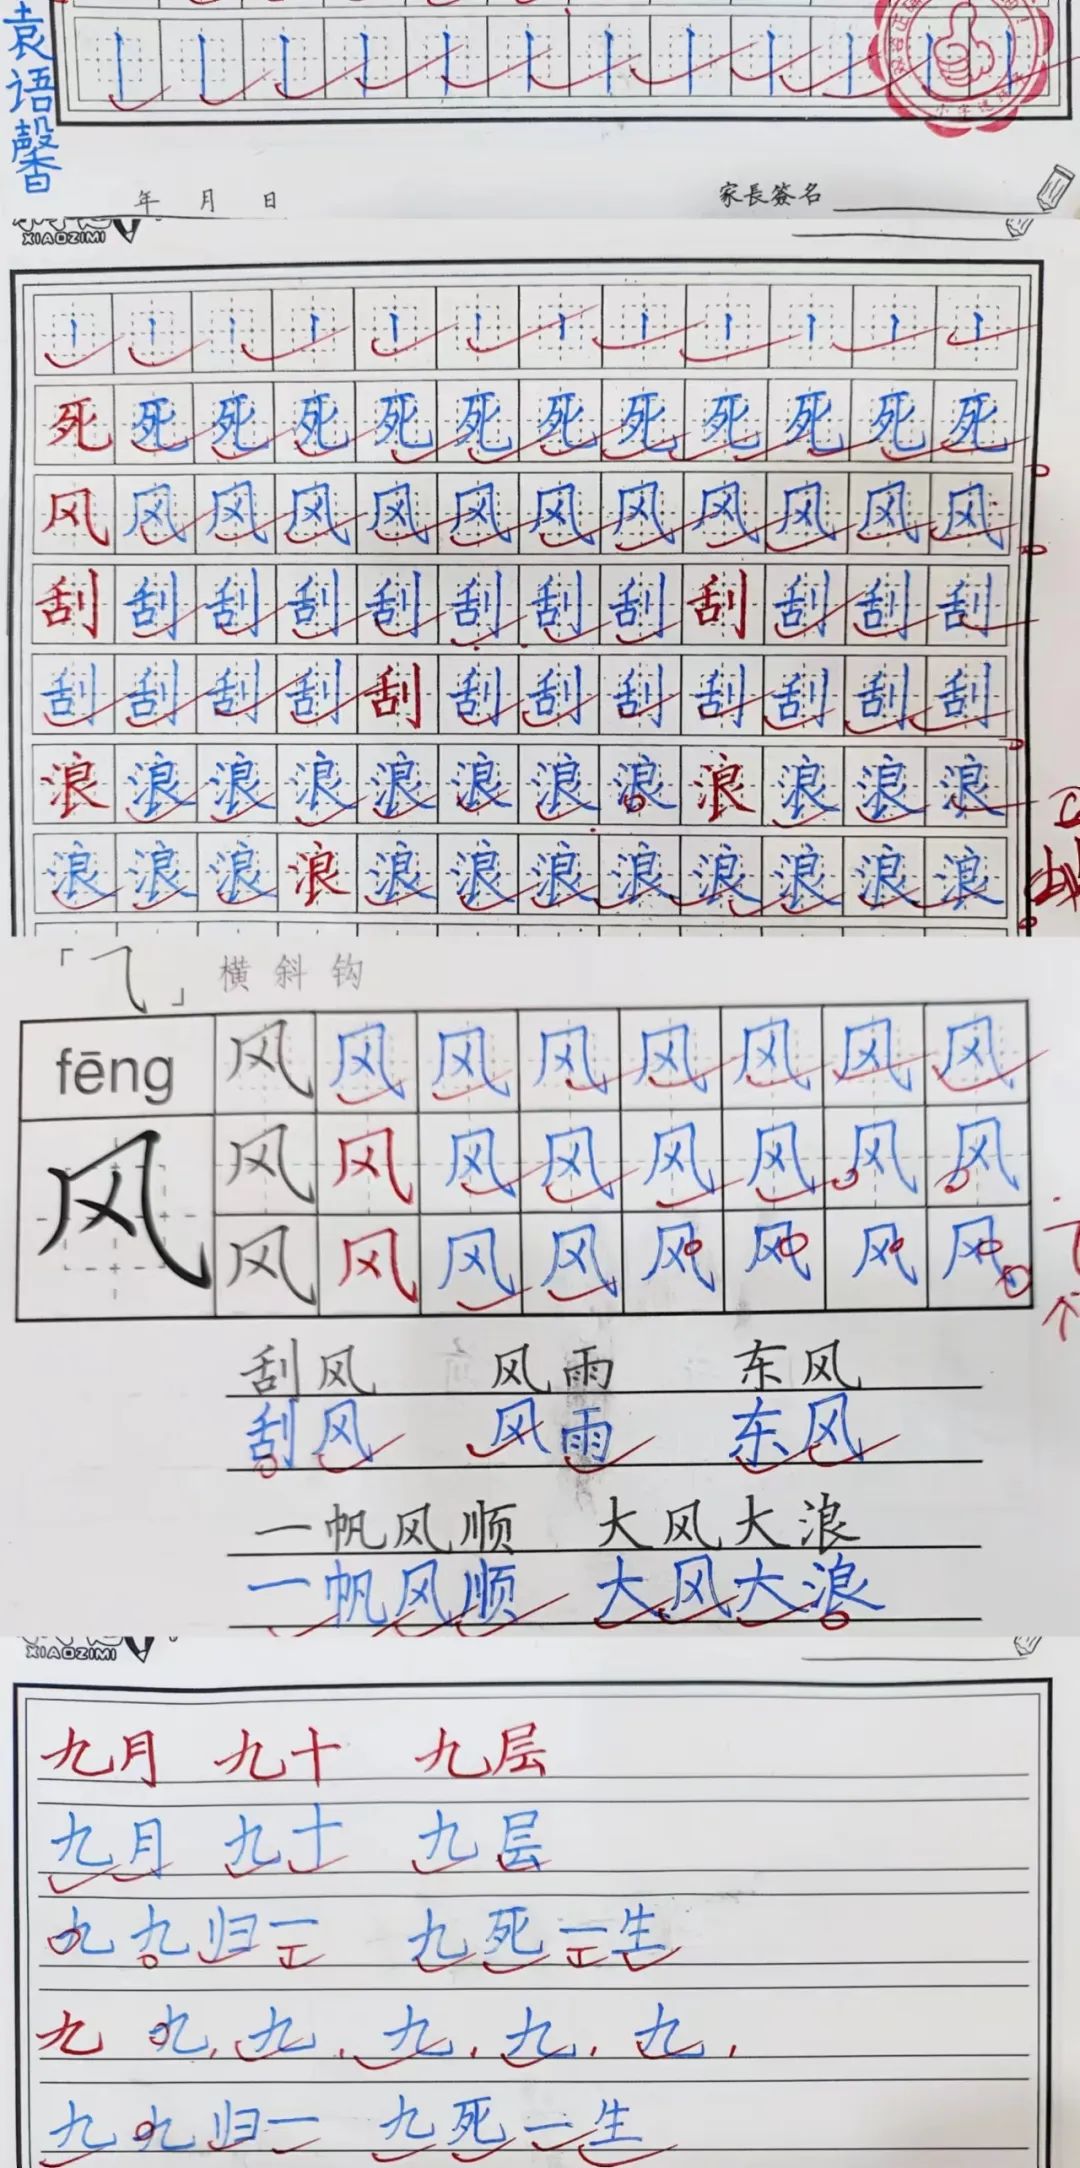 袁语馨
年 月 日 家長簽名
XIAOZIMI
死 死 死 死 死 死 死 死 死 死 死 死
风 风 风 风 风 风 风 风 风 风 风 风
刮 刮 刮 刮 刮 刮 刮 刮 刮 刮 刮 刮
刮 刮 刮 刮 刮 刮 刮 刮 刮 刮 刮 刮
浪 浪 浪 浪 浪 浪 浪 浪 浪 浪 浪 浪
浪 浪 浪 浪 浪 浪 浪 浪 浪 浪 浪 浪
「⺄」横斜钩
fēng 风 风 风 风 风 风 风 风
风 风 风 风 风 风 风 风 风
风 风 风 风 风 风 风 风
刮风 风雨 东风
刮风 风雨 东风
一帆风顺 大风大浪
一帆风顺 大风大浪
XIAOZIMI
九月 九十 九层
九月 九十 九层
九九归一 九死一生
正 正
九 九, 九, 九, 九, 九,
九九归一 九死一生